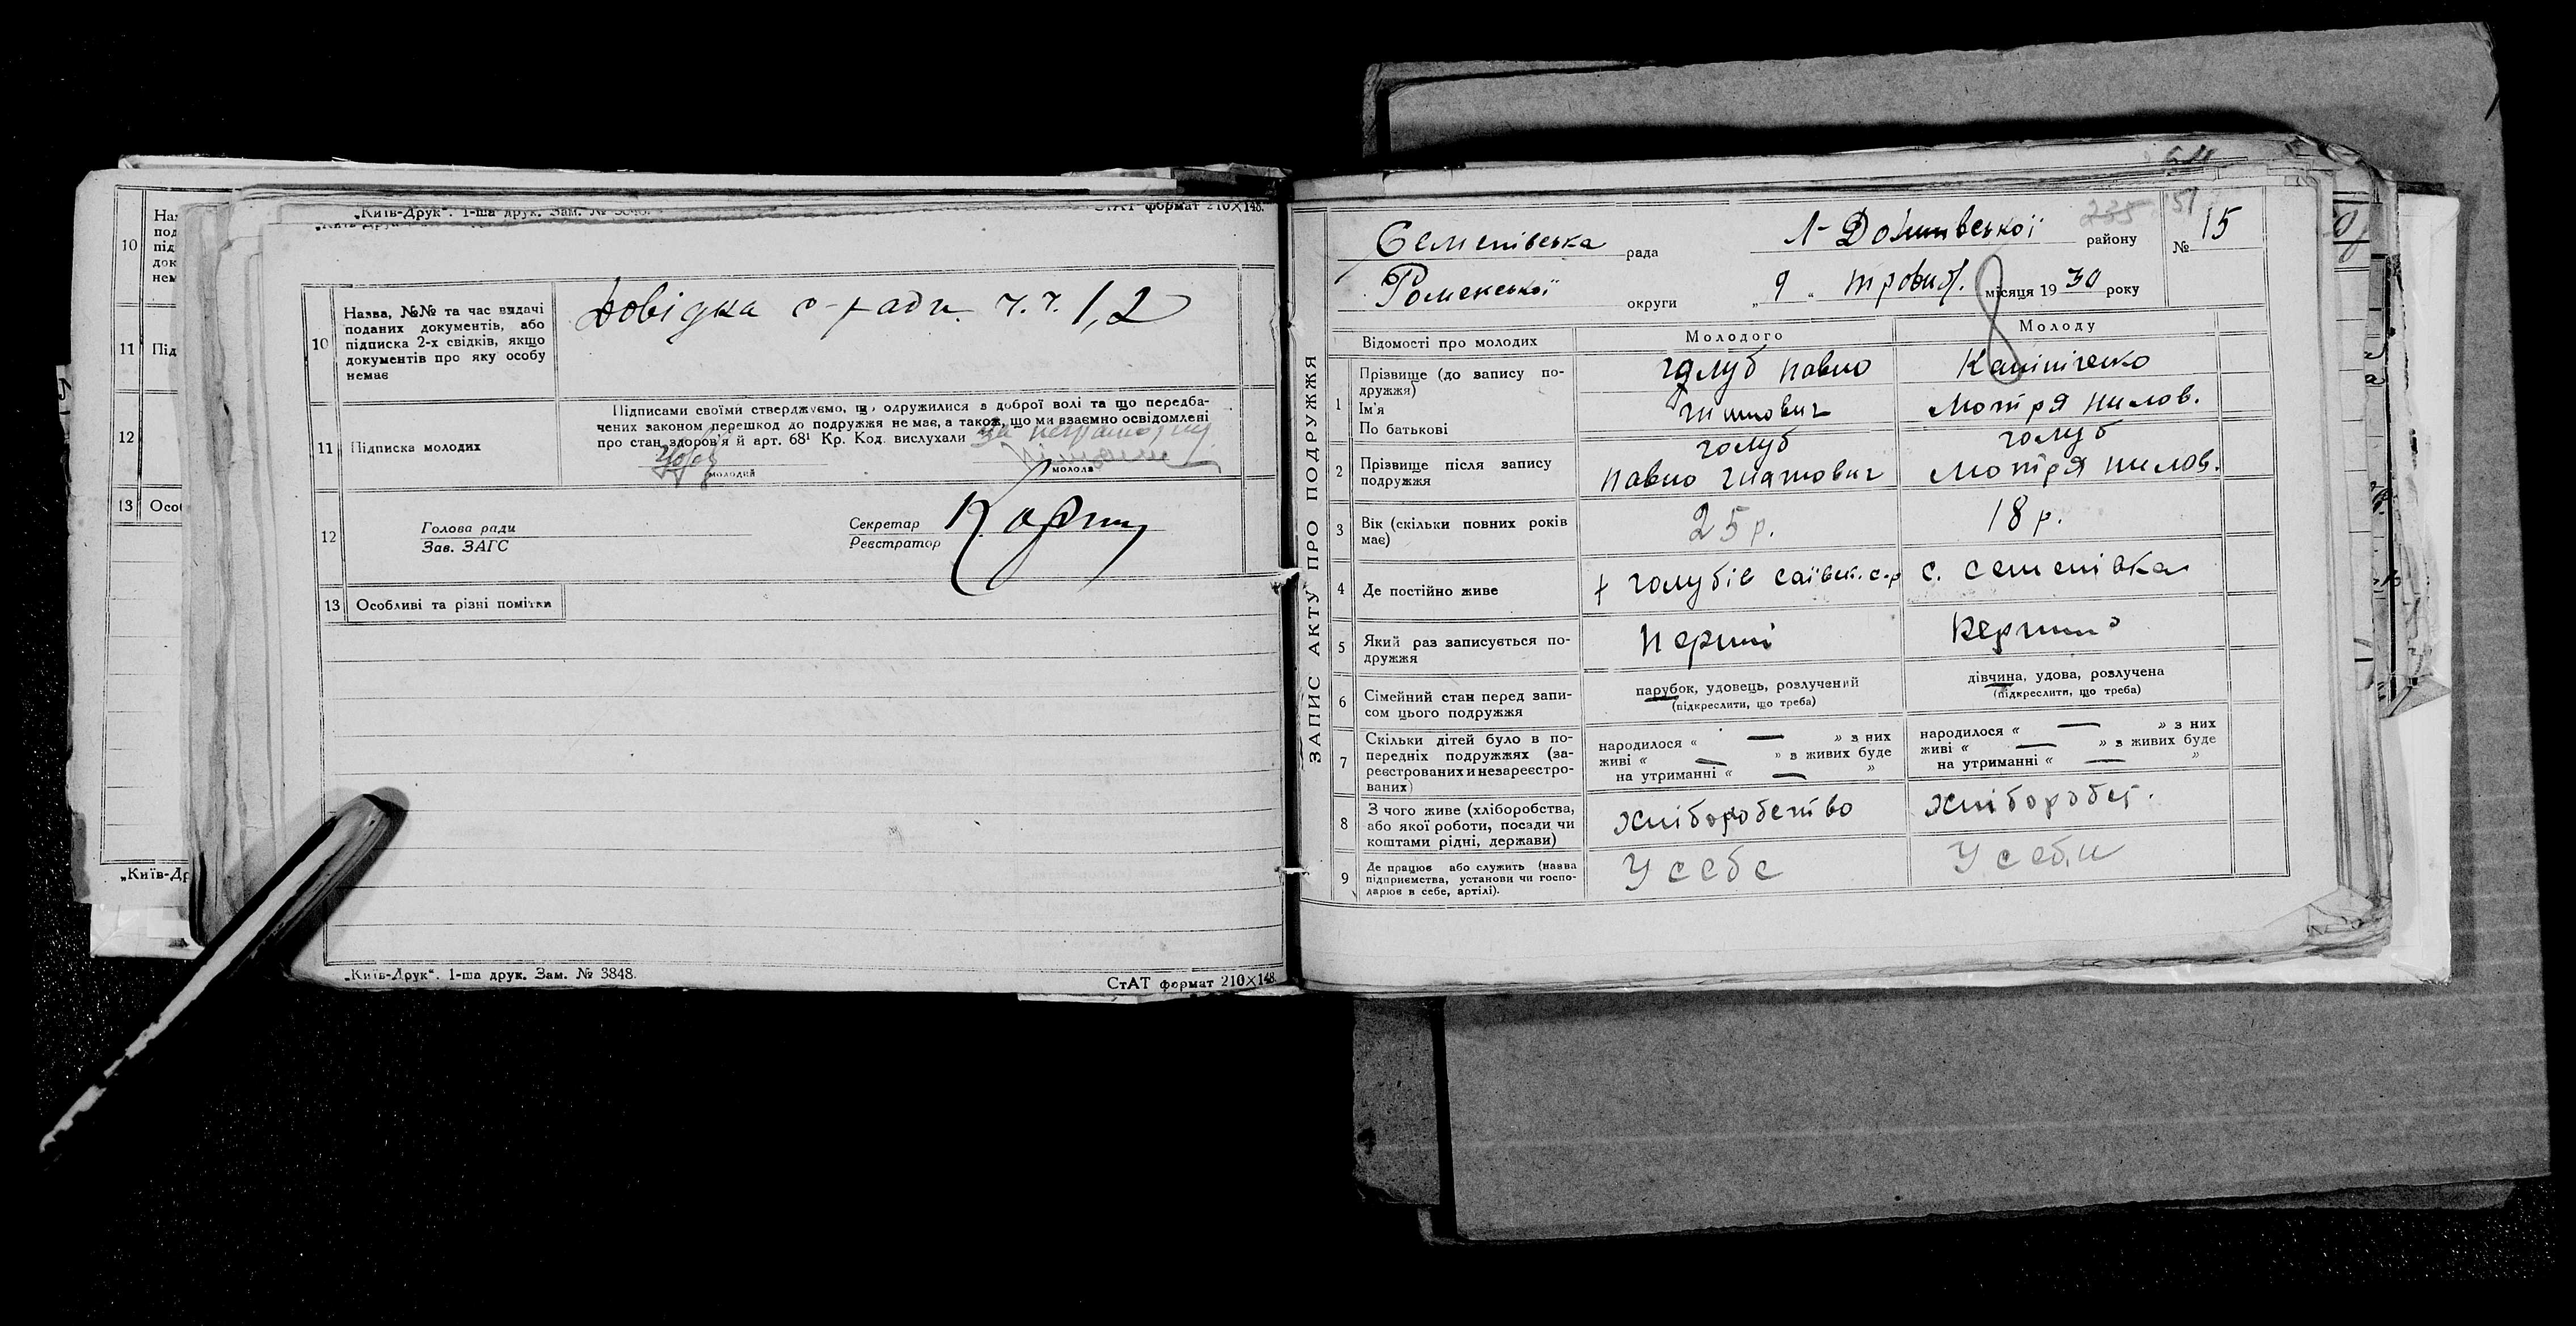 10
11
12
13
„Київ-Др
„Київ-Друк“. 1-ша друк. Зам. № 3848.
СтАТ формат 210×148.
10 Назва, №№ та час видачі поданих документів, або підписка 2-х свідків, якщо документів про яку особу немає
Довідка с-ради ч.ч. 1, 2
11 Підписка молодих
Підписами своїми стверджуємо, що одружилися з доброї волі та що передба-
чених законом перешкод до подружжя не має, а також, що ми взаємно освідомлені
про стан здоров'я й арт. 68¹ Кр. Код. вислухали
молодий
молода
12
Голова ради
Зав. ЗАГС
Секретар
Реєстратор
13 Особливі та різні помітки
„Київ-Друк“. 1-ша друк. Зам. № 3848.
СтАТ формат 210×148.
235 151
ЗАПИС АКТУ ПРО ПОДРУЖЖЯ
Семенівська рада
району
№ 15
Роменської округи „9“ місяця 1930 року
Відомості про молодих
Молодого
Молоду
1 Прізвище (до запису по-
дружжя)
Ім'я
По батькові
голуб павло
гнатович
Мотря пилов.
2 Прізвище після запису
подружжя
голуб
павло гнатович
голуб
Мотря пилов.
3 Вік (скільки повних років
має)
25 р.
18 р.
4 Де постійно живе
х голубів
с. семенівка
5 Який раз записується по-
дружжя
перший
6 Сімейний стан перед запи-
сом цього подружжя
парубок, удовець, розлучений
(підкреслити, що треба)
дівчина, удова, розлучена
(підкреслити, що треба)
7 Скільки дітей було в по-
передніх подружжях (за-
реєстрованих и незареєстро-
ваних)
народилося « — » з них
живі « — » з живих буде
на утриманні « — »
народилося « — » з них
живі « — » з живих буде
на утриманні « — »
8 З чого живе (хліборобства,
або якої роботи, посади чи
коштами рідні, держави)
хліборобство
хлібороб
9 Де працює або служить (назва
підприємства, установи чи госпо-
дарює в себе, артілі).
У себе
У себи